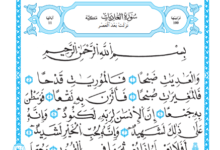 سُورَةُ العَادِيَاتِ مَكِّيَّة
نزلت بعد العصر
بِسْمِ ٱللَّهِ ٱلرَّحْمَٰنِ ٱلرَّحِيمِ
وَٱلْعَٰدِيَٰتِ ضَبْحًا فَٱلْمُورِيَٰتِ قَدْحًا
فَٱلْمُغِيرَٰتِ صُبْحًا فَأَثَرْنَ بِهِۦ نَقْعًا فَوَسَطْنَ
بِهِۦ جَمْعًا إِنَّ ٱلْإِنسَٰنَ لِرَبِّهِۦ لَكَنُودٌ وَإِنَّهُۥ
عَلَىٰ ذَٰلِكَ لَشَهِيدٌ وَإِنَّهُۥ لِحُبِّ ٱلْخَيْرِ لَشَدِيدٌ